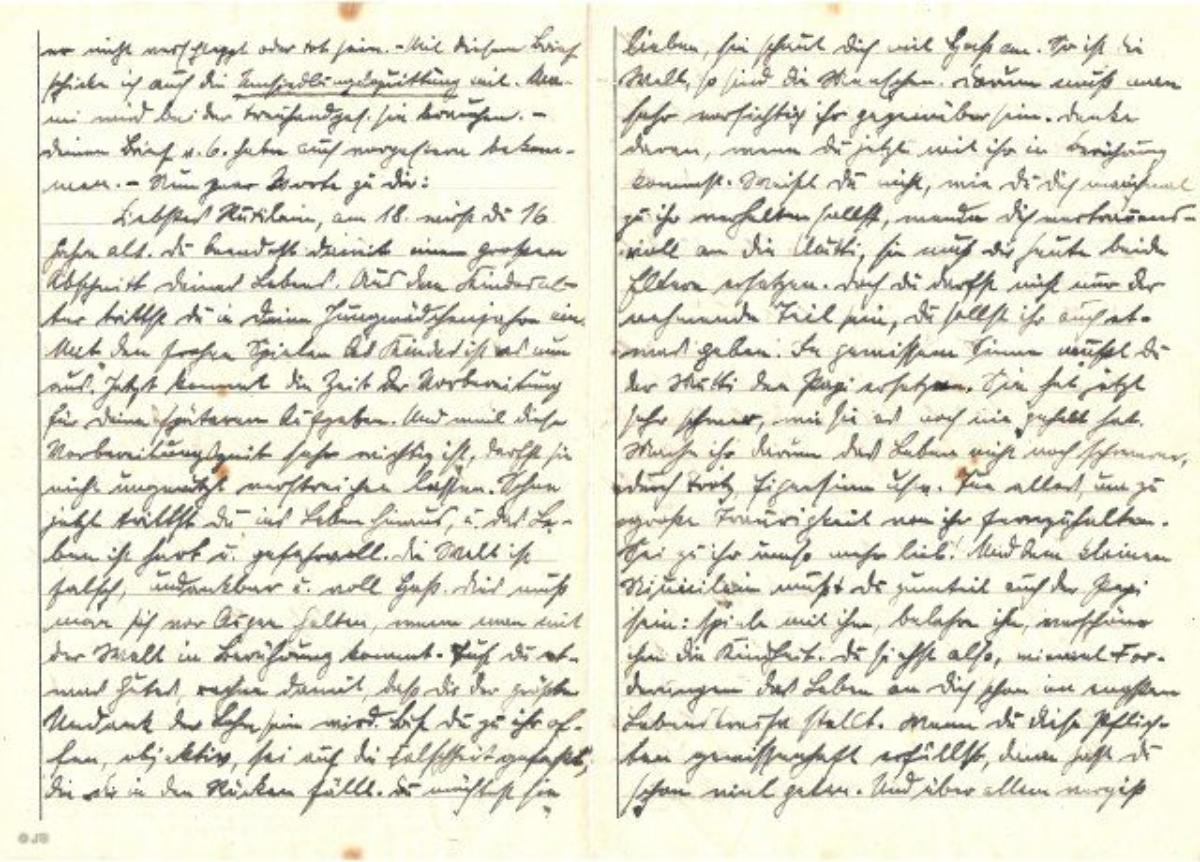 er nicht verschleppt oder tot sein. - Mit diesem Brief
schicke ich auch die Umsiedlungsquittung mit. Ma-
mi wird bei der Treuhandges. sie brauchen. -
deinen Brief v. 6. habe auch vorgestern bekom-
men. - Nun zwei Worte zu dir:
Liebstes, am 18. wirst du 16
Jahre alt. du beendest damit einen großen
Abschnitt deines Lebens. Aus dem Kindesal-
ter trittst du in deine Jungmädchenjahre ein.
Mit den frohen Spielen des Kindes ist es nun
aus. Jetzt kommt die Zeit der Vorbereitung
für deine späteren Aufgaben. Und weil diese
Vorbereitungszeit sehr wichtig ist, darfst sie
nicht ungenützt verstreichen lassen. Schon
jetzt trittst du ins Leben hinaus, u. das Le-
ben ist hart u. gefahrvoll. die Welt ist
falsch, undankbar u. voll Haß. dies muß
man sich vor Augen halten, wenn man mit
der Welt in Berührung kommt. Tust du et-
was Gutes, rechne damit, daß dir der größte
Undank der Lohn sein wird. Bist du zu ihr of-
fen, objektiv, sei auf die Falschheit gefaßt,
die dir in den Rücken fällt. du möchtest sie
lieben, sie schaut dich mit Haß an. So ist die
Welt, so sind die Menschen. darum muß man
sehr vorsichtig ihr gegenüber sein. denke
daran, wenn du jetzt mit ihr in Berührung
kommst. Weißt du nicht, wie du dich manchmal
zu ihr verhalten sollst, wende dich vertrauens-
voll an die Mutti, sie muß dir heute beide
Eltern ersetzen. doch du darfst nicht nur der
nehmende Teil sein, du sollst ihr auch et-
was geben. In gewissem Sinne mußt du
der Mutti den Papi ersetzen. Sie hat jetzt
sehr schwer, wie sie es noch nie gehabt hat.
Mache ihr darum das Leben nicht noch schwerer,
durch Trotz, Eigensinn usw. Tue alles, um zu
große Traurigkeit von ihr fernzuhalten.
Sei zu ihr umso mehr lieb! Und dem kleinen
mußt du zumteil auch der Papi
sein: spiele mit ihm, belehre ihn, verschöne
ihm die Kindheit. du siehst also, wieviel For-
derungen das Leben an dich schon im engsten
Lebenskreise stellt. Wenn du diese Pflich-
ten gewissenhaft erfüllst, dann hast du
schon viel getan. Und über allem vergiß